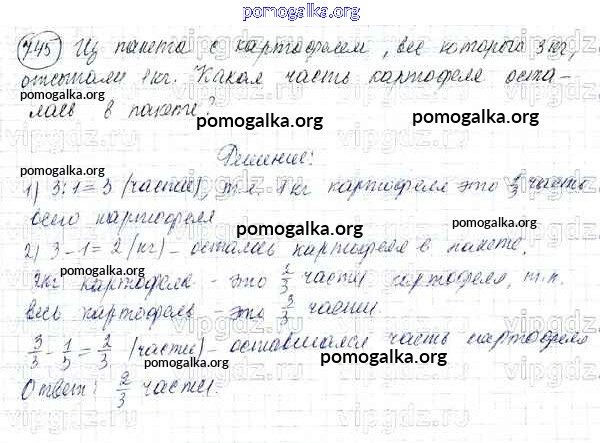 pomogalka.org
7.45 Из пакета с картофелем, вес которого 3 кг,
отсыпали 1 кг. Какая часть картофеля оста-
pomogalka.org pomogalka.org
лась в пакете?
pomogalka.org pomogalka.org
Решение:
pomogalka.org
1) 3:1=3 (части), т.е. 1 кг картофеля это 1/3 часть
всего картофеля
pomogalka.org pomogalka.org
2) 3-1=2 (кг) - осталось картофеля в пакете.
pomogalka.org
2кг картофеля - это 2/3 части картофеля, т.к.
весь картофель - это 3/3 части.
pomogalka.org
3/3 - 1/3 = 2/3 (части) - оставшаяся часть картофеля
pomogalka.org
Ответ: 2/3 части.
pomogalka.org